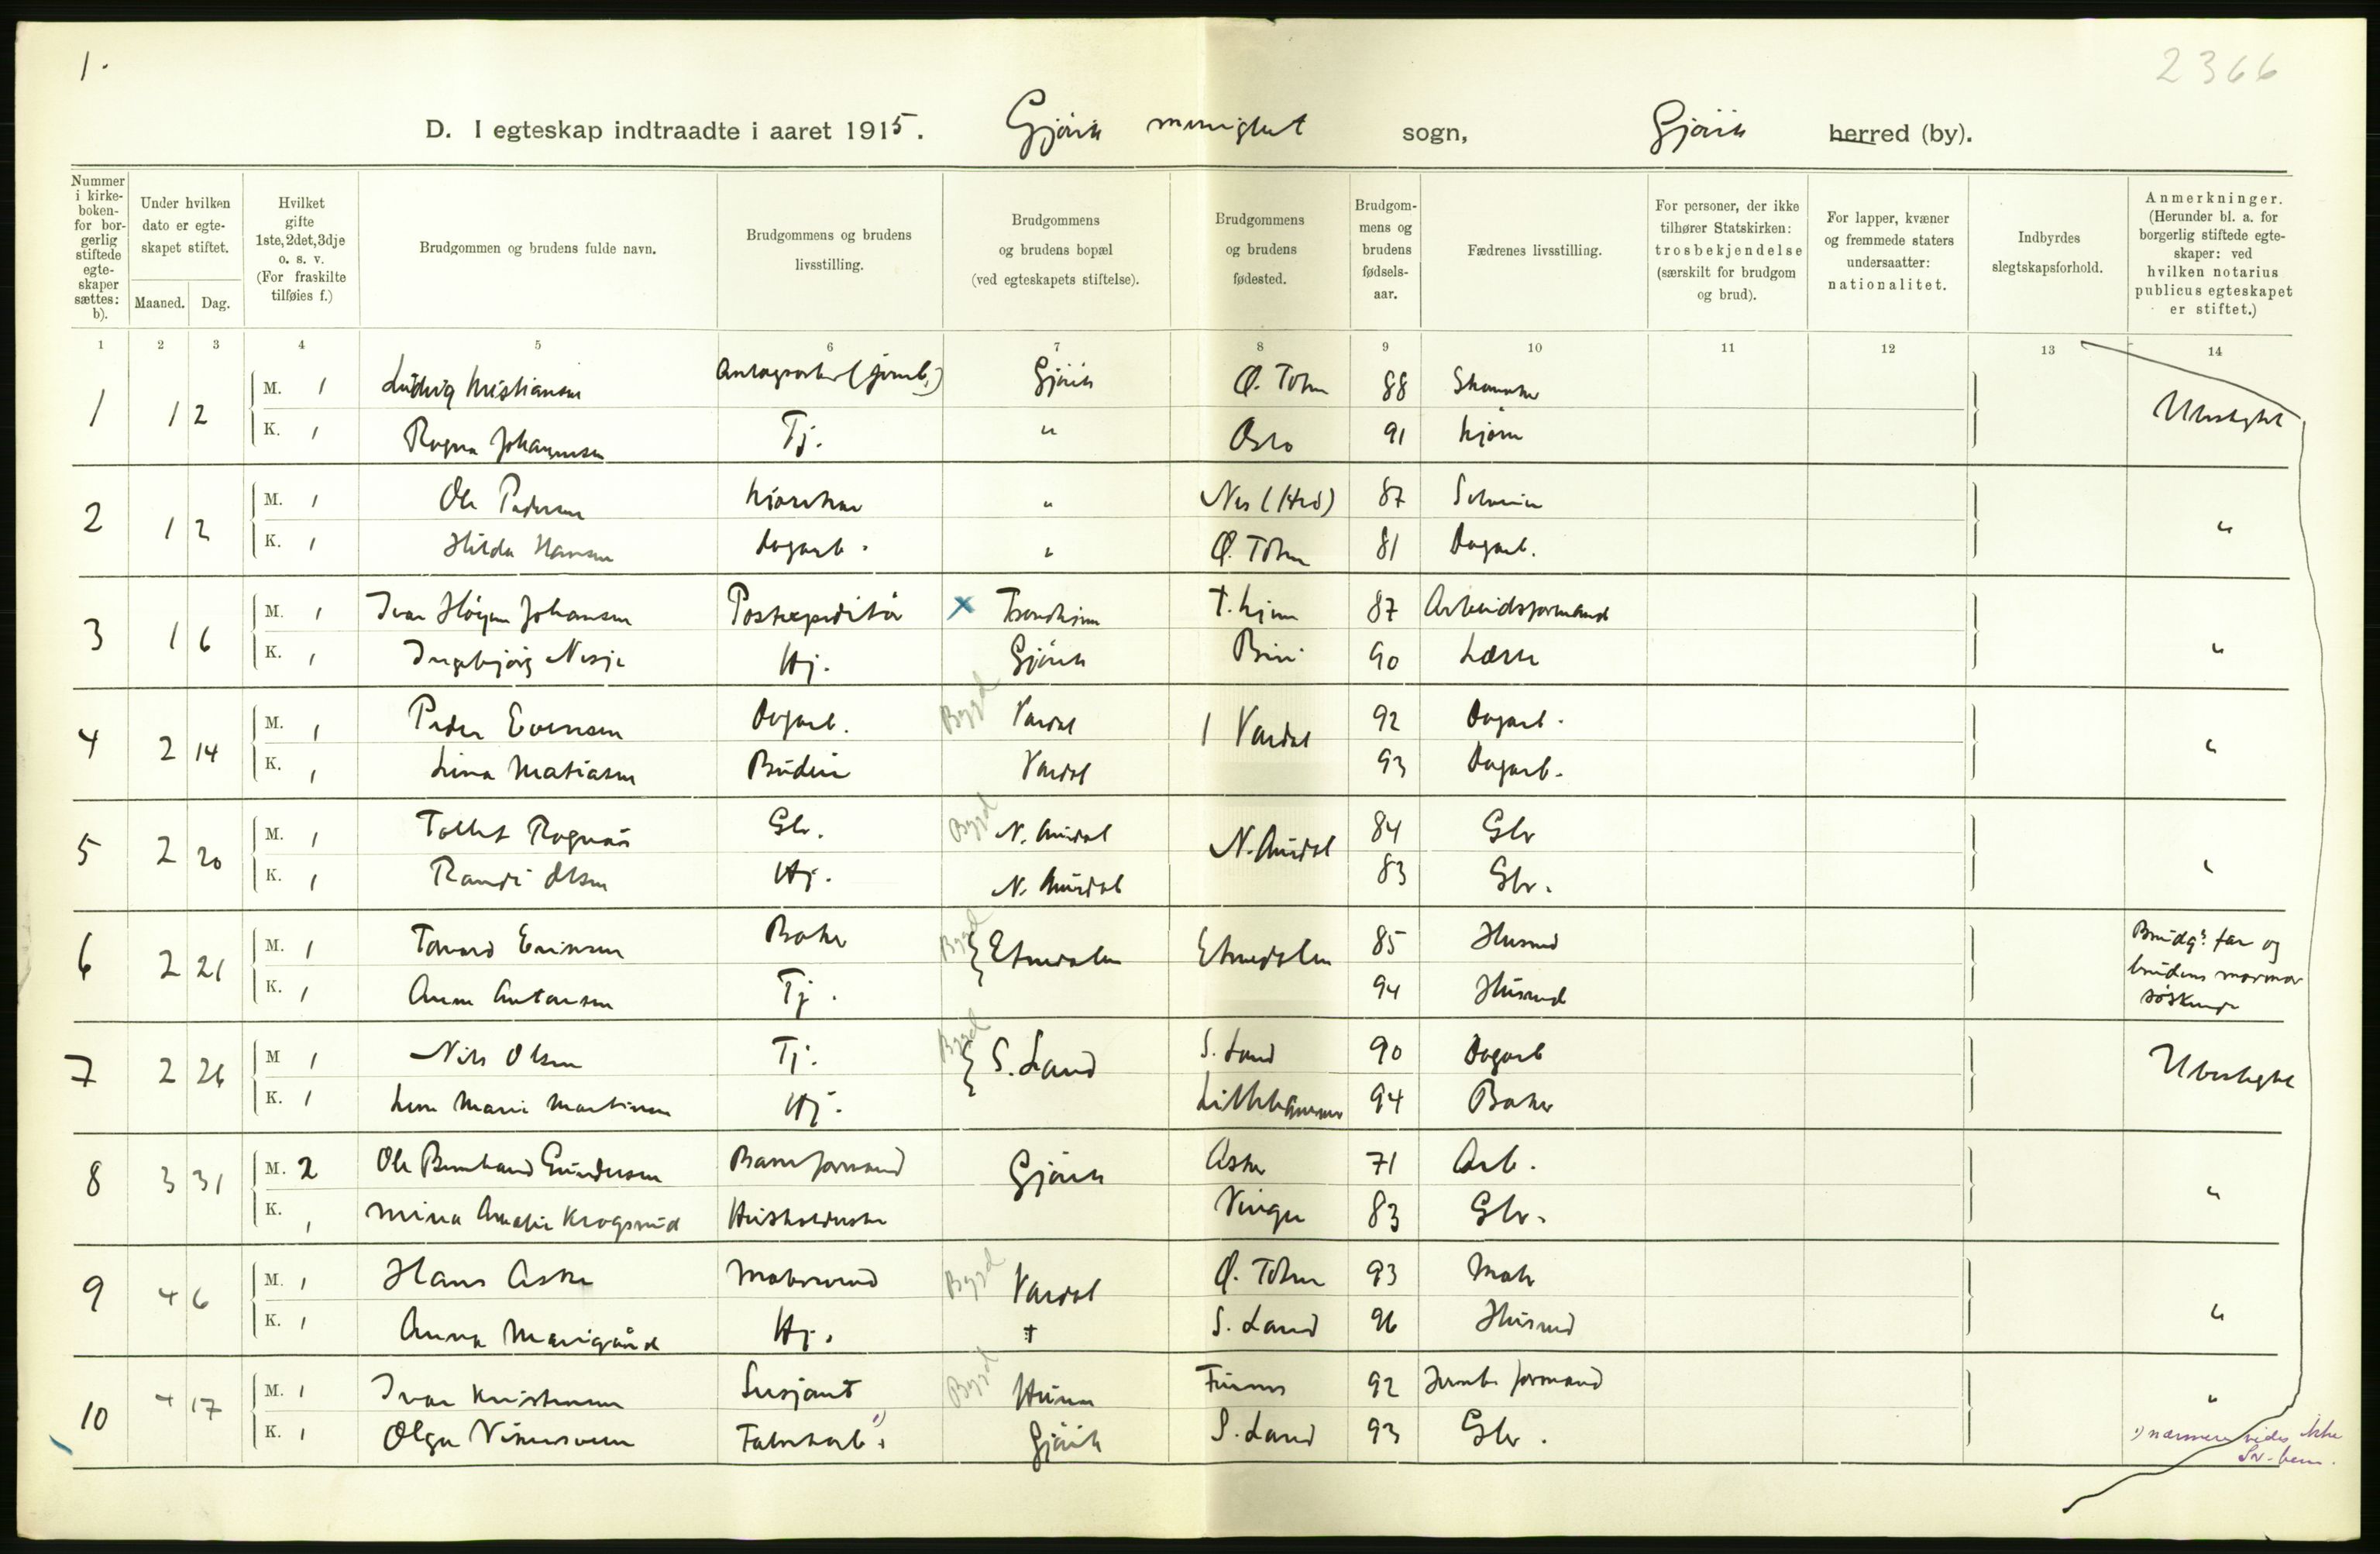 1.
2366
D. I egteskap indtraadte i aaret 1915. Gjøvik menighet sogn, Gjøvik herred (by).
Nummer i kirke-boken- for bor-gerlig stiftede egte-skaper sættes: b).
Under hvilken dato er egte-skapet stiftet.
Maaned. Dag.
Hvilket gifte 1ste, 2det, 3dje o. s. v. (For fraskilte tilføies f.)
Brudgommen og brudens fulde navn.
Brudgommens og brudens livsstilling.
Brudgommens og brudens bopæl (ved egteskapets stiftelse).
Brudgommens og brudens fødested.
Brudgom-mens og brudens fødsels-aar.
Fædrenes livsstilling.
For personer, der ikke tilhører Statskirken: trosbekjendelse (særskilt for brudgom og brud).
For lapper, kvæner og fremmede staters undersaatter: nationalitet.
Indbyrdes slegtskapsforhold.
Anmerkninger. (Herunder bl. a. for borgerlig stiftede egte-skaper: ved hvilken notarius publicus egteskapet er stiftet.)
1 2 3 4 5 6 7 8 9 10 11 12 13 14
1 1 2 M. 1 Ludvig Kristiansen Gjøvik Ø. Toten 88 Ubeslegtet
K. 1 Ragna Johannesen Tj. " Oslo 91
2 1 2 M. 1 Ole Pedersen " Nes (Hed) 87 "
K. 1 Hilda Hansen Dagarb. " Ø. Toten 81 Dagarb.
3 1 6 M. 1 Ivar Høyem Johansen Postexpeditør x Trondhjem T.hjem 87 Arbeidsformand "
K. 1 Ingebjørg Nesje Hj. Gjøvik Biri 90 Lærer
4 2 14 M. 1 Peder Evensen Dagarb. Bygd Vardal 1 Vardal 92 Dagarb. "
K. 1 Lina Matiasen Budeie Vardal 93 Dagarb.
5 2 20 M. 1 Tollef Rognås Gbr. Bygd N. Aurdal N. Aurdal 84 Gbr "
K. 1 Randi Olsen Hj. N. Aurdal 83 Gbr.
6 2 21 M. 1 Tovard Eriksen Baker Bygd Etnedalen Etnedalen 85 Husmd Brudg.s far og brudens mormor søskende
K. 1 Anne Antonsen Tj. 94 Husmd
7 2 26 M 1 Nils Olsen Tj. Bygd S. Land S. Land 90 Dagarb Ubeslegtet
K. 1 Lina Marie Martinsen Hj. Lillehammer 94 Baker
8 3 31 M. 2 Ole Bernhard Gundersen Baneformand Gjøvik Asker 71 Arb. "
K. 1 Mina Amalie Krogsrud Husholderske Vinger 83 Gbr.
9 4 6 M. 1 Hans Asker Malersvend Bygd Vardal Ø. Toten 93 Maler "
K. 1 Anna Mævigård Hj. + S. Land 96 Husmd
10 4 17 M. 1 Ivar Kristensen Sersjant Bygd Hunn Furnes 92 Jernb. formand "
K. 1 Olga Fabrikarb. 1) Gjøvik S. Land 93 Gbr.
1) nærmere vides ikke